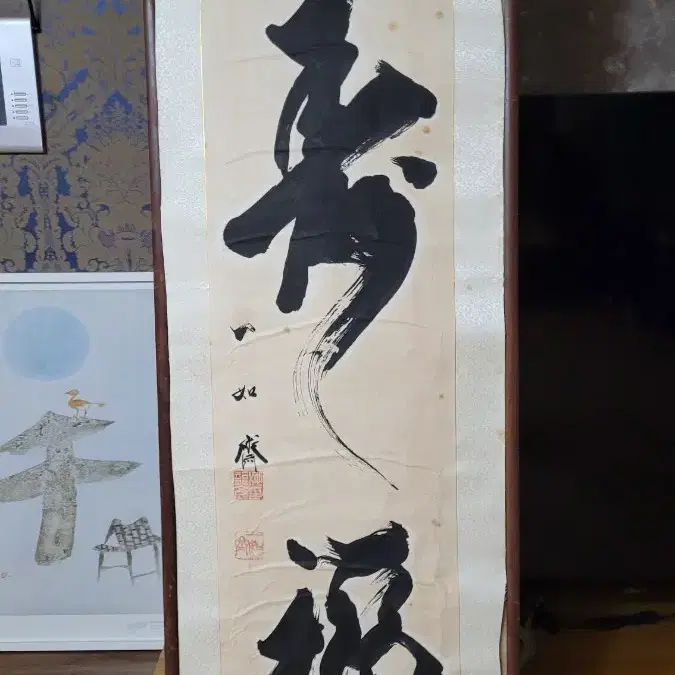 壽福
一如齋